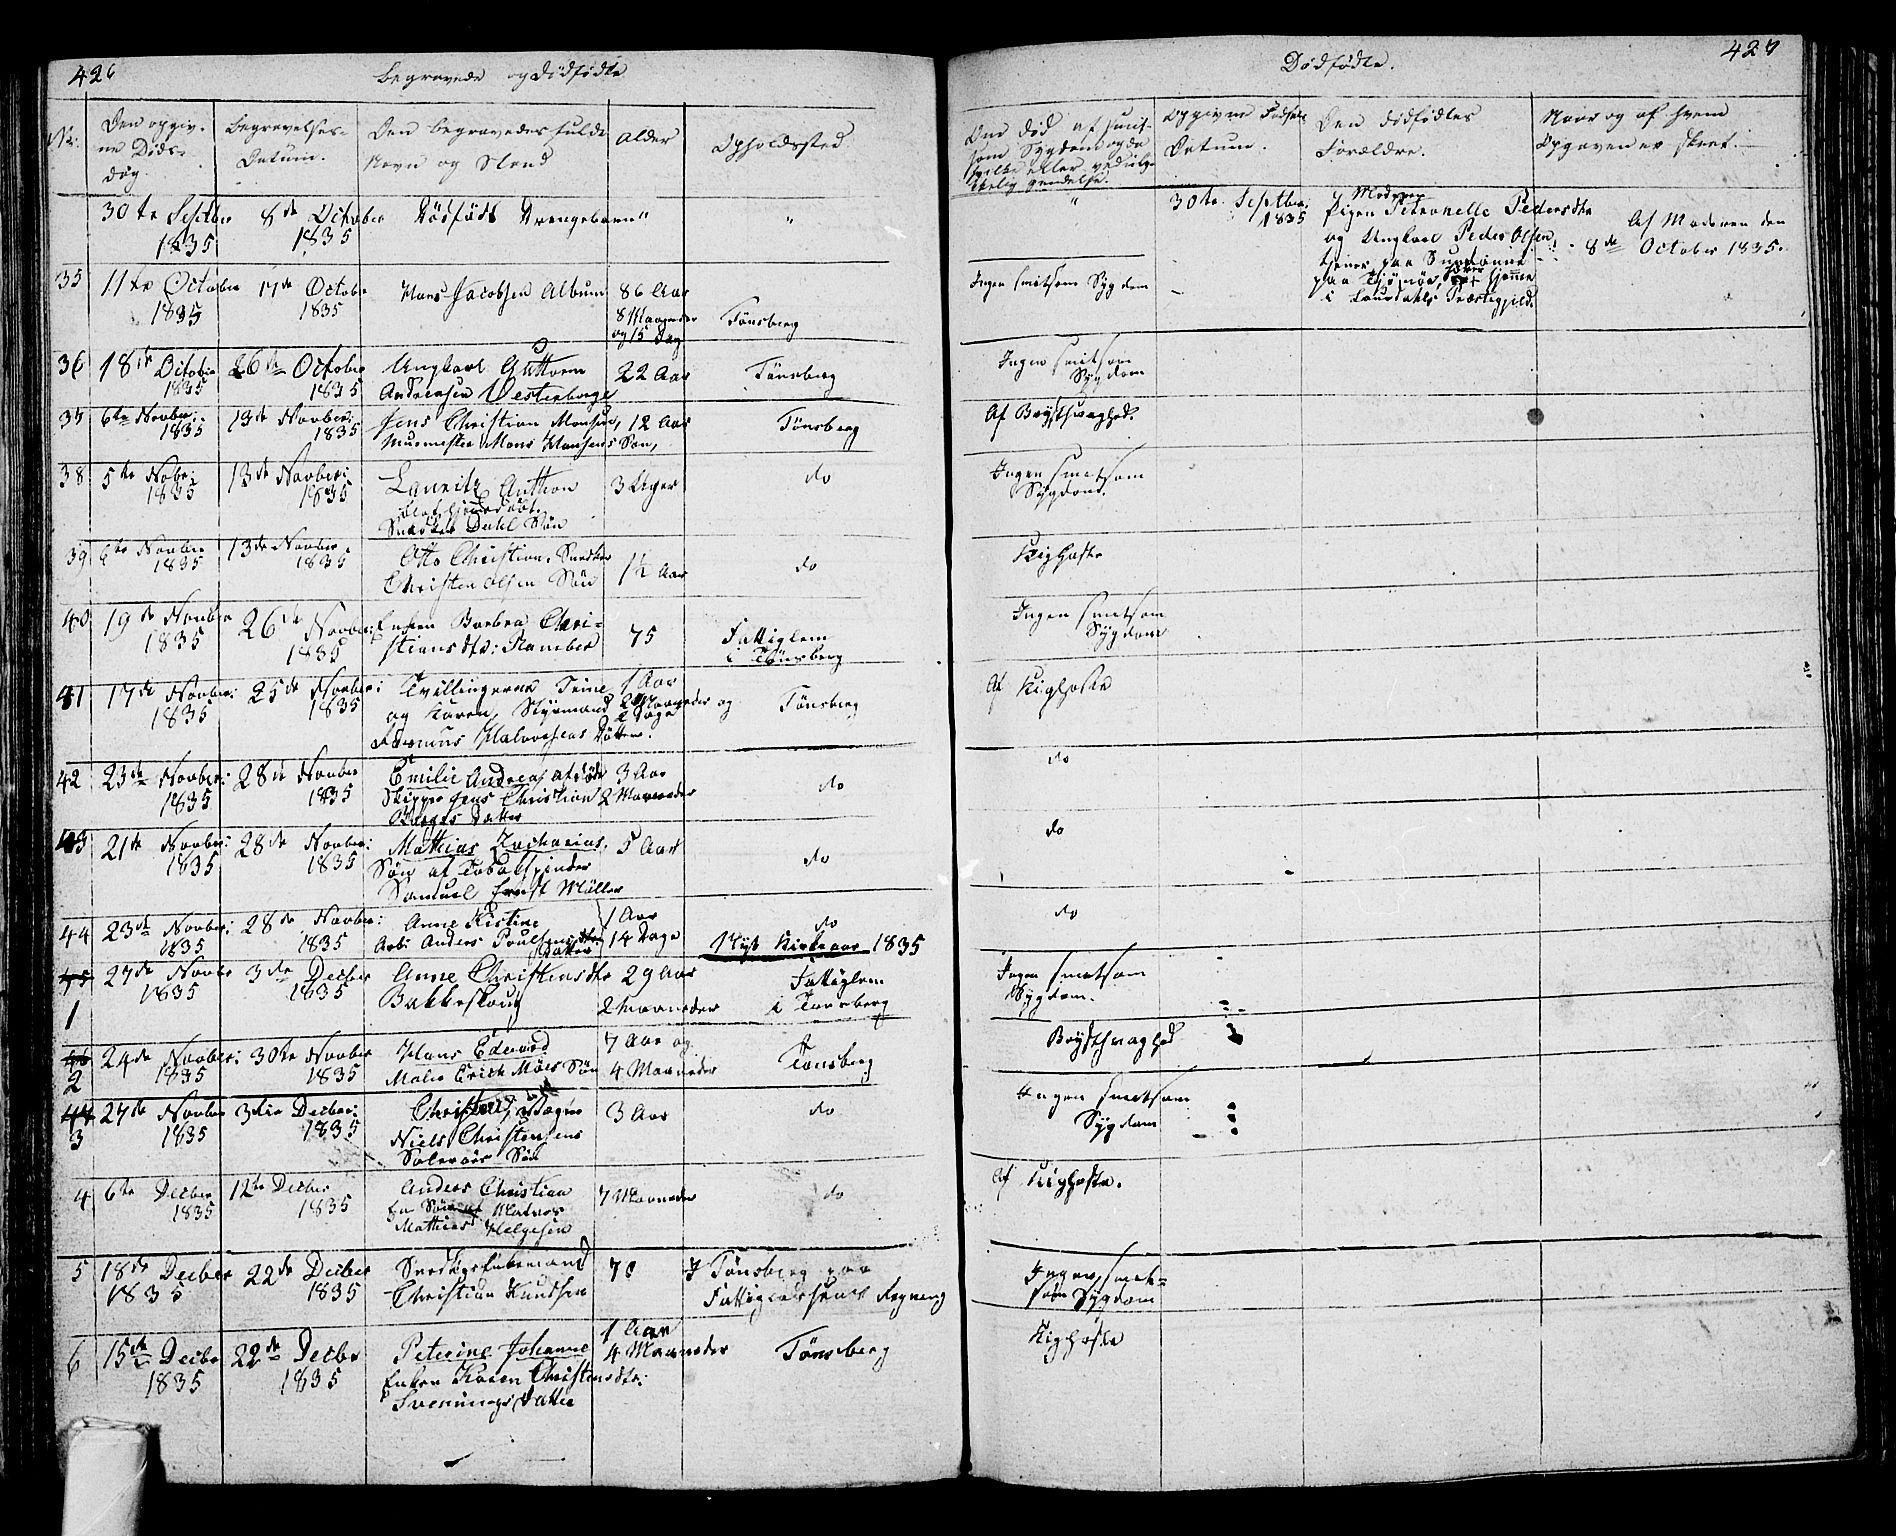 426
Begravede og Dødfødte
No:
Den opgiv-
ne Døds-
dag.
Begravelses-
Datum.
Den begravedes fulde
Navn og Stand
Alder
Opholdssted.
30te Septbr 1835
8de October 1835
Dødfødt Drengebarn
"
"
35
11te Octobr 1835
17de Octobr 1835
Hans Jacobsen Album
86 Aar
8 Maaneder
og 15 Dag
Tønsberg
36
18de Octobr 1835
26de Octobr 1835
Ungkarl Guttorm
Andreasen Westerborge
22 Aar
Tønsberg
37
6te Novber: 1835
13de Novber: 1835
Jens Christian Monsen,
Muurmester Mons Hansens Søn,
12 Aar
Tønsberg
38
5te Nobr: 1835
13de Novber: 1835
Lauritz Anthon
Snedker Dahl Søn
3 Uger
do
39
6te Novber 1835
13de Novber 1835
Otto Christian, Snedker
Christen Olsen Søn
1½ Aar
do
40
19de Novber 1835
26de Novber: 1835
Enken Barbra Chri-
stiansdtr: Ramber
75
Fattiglem
i Tønsberg
41
17de Novber: 1835
25de Novber: 1835
Tvillingerne Trine
og Karen, Styrmand
Halvorsens Døttre.
1 Aar
2 Maaneder og
2 Dage
Tønsberg
42
23de Novber: 1835
28de Novber 1835
Emilie Andrea, afdøde
Skipper Jens Christian
Datter
3 Aar
2 Maaneder
do
43
21de Novber: 1835
28de Novber: 1835
Mathias Zacharias,
Søn af Tobakspinder
Samuel Ernst Müller
5 Aar
do
44
23de Novber: 1835
28de Novber: 1835
Anne Kistine
Arb: Anders Poulsens
Datter
1 Aar
14 Dage
do
Nyt Kirkeaar 1835
45
1
27de Novbr 1835
3de Decber 1835
Anne Christensdtr
Bakkeskoug
29 Aar
2 Maaneder
Fattiglem
i Tønsberg
46
2
24de Novber: 1835
30te Novber 1835
Hans Edvard
Maler Erich Møes Søn
7 Aar og
4 Maaneder
Tønsberg
47
3
27de Novber 1835
3die Decber: 1835
Niels Christensens
Søn
3 Aar
do
4
6te Decber 1835
12te Decber 1835
Anders Christian
en Søn af Matros
Mathias Helgesen
7 Maaneder
do
5
18de Decber 1835
22de Decber 1835
Christian Knudsen
I Tønsberg paa
Fattigvæsenets Regning
6
15de Decbr 1835
22de Decber 1835
Peterine Johanne
Enken Karen Christensdtr:
Svennings Datter
1 Aar
4 Maaneder
Tønsberg
427
Dødfødte.
Om død af smit-
som Sygdom og da
hvilke eller ved ulyk-
kelig Hendelse.
Opgivne Fødsels
Datum.
Den dødfødtes
Forældre.
Naar og af hvem
Opgaven er skeet.
"
30te Septber: 1835
Moderen
Pigen Petronelle Pedersdtr
og Ungkarl Peder Olsen
tjener paa
paa Tjømøe,
i Præstegjeld.
Af Moderen den
8de October 1835.
Ingen smitsom Sygdom
Ingen smitsom
Sygdom
Af Brystsvaghed.
Ingen smitsom
Sygdom.
Kighoste
Ingen smitsom
Sygdom
Af Kighoste
do
do
do
Ingen smitsom
Sygdom.
Brystsvaghed
Ingen smitsom
Sygdom
Af Kighoste.
Ingen smit-
som Sygdom
Kighoste